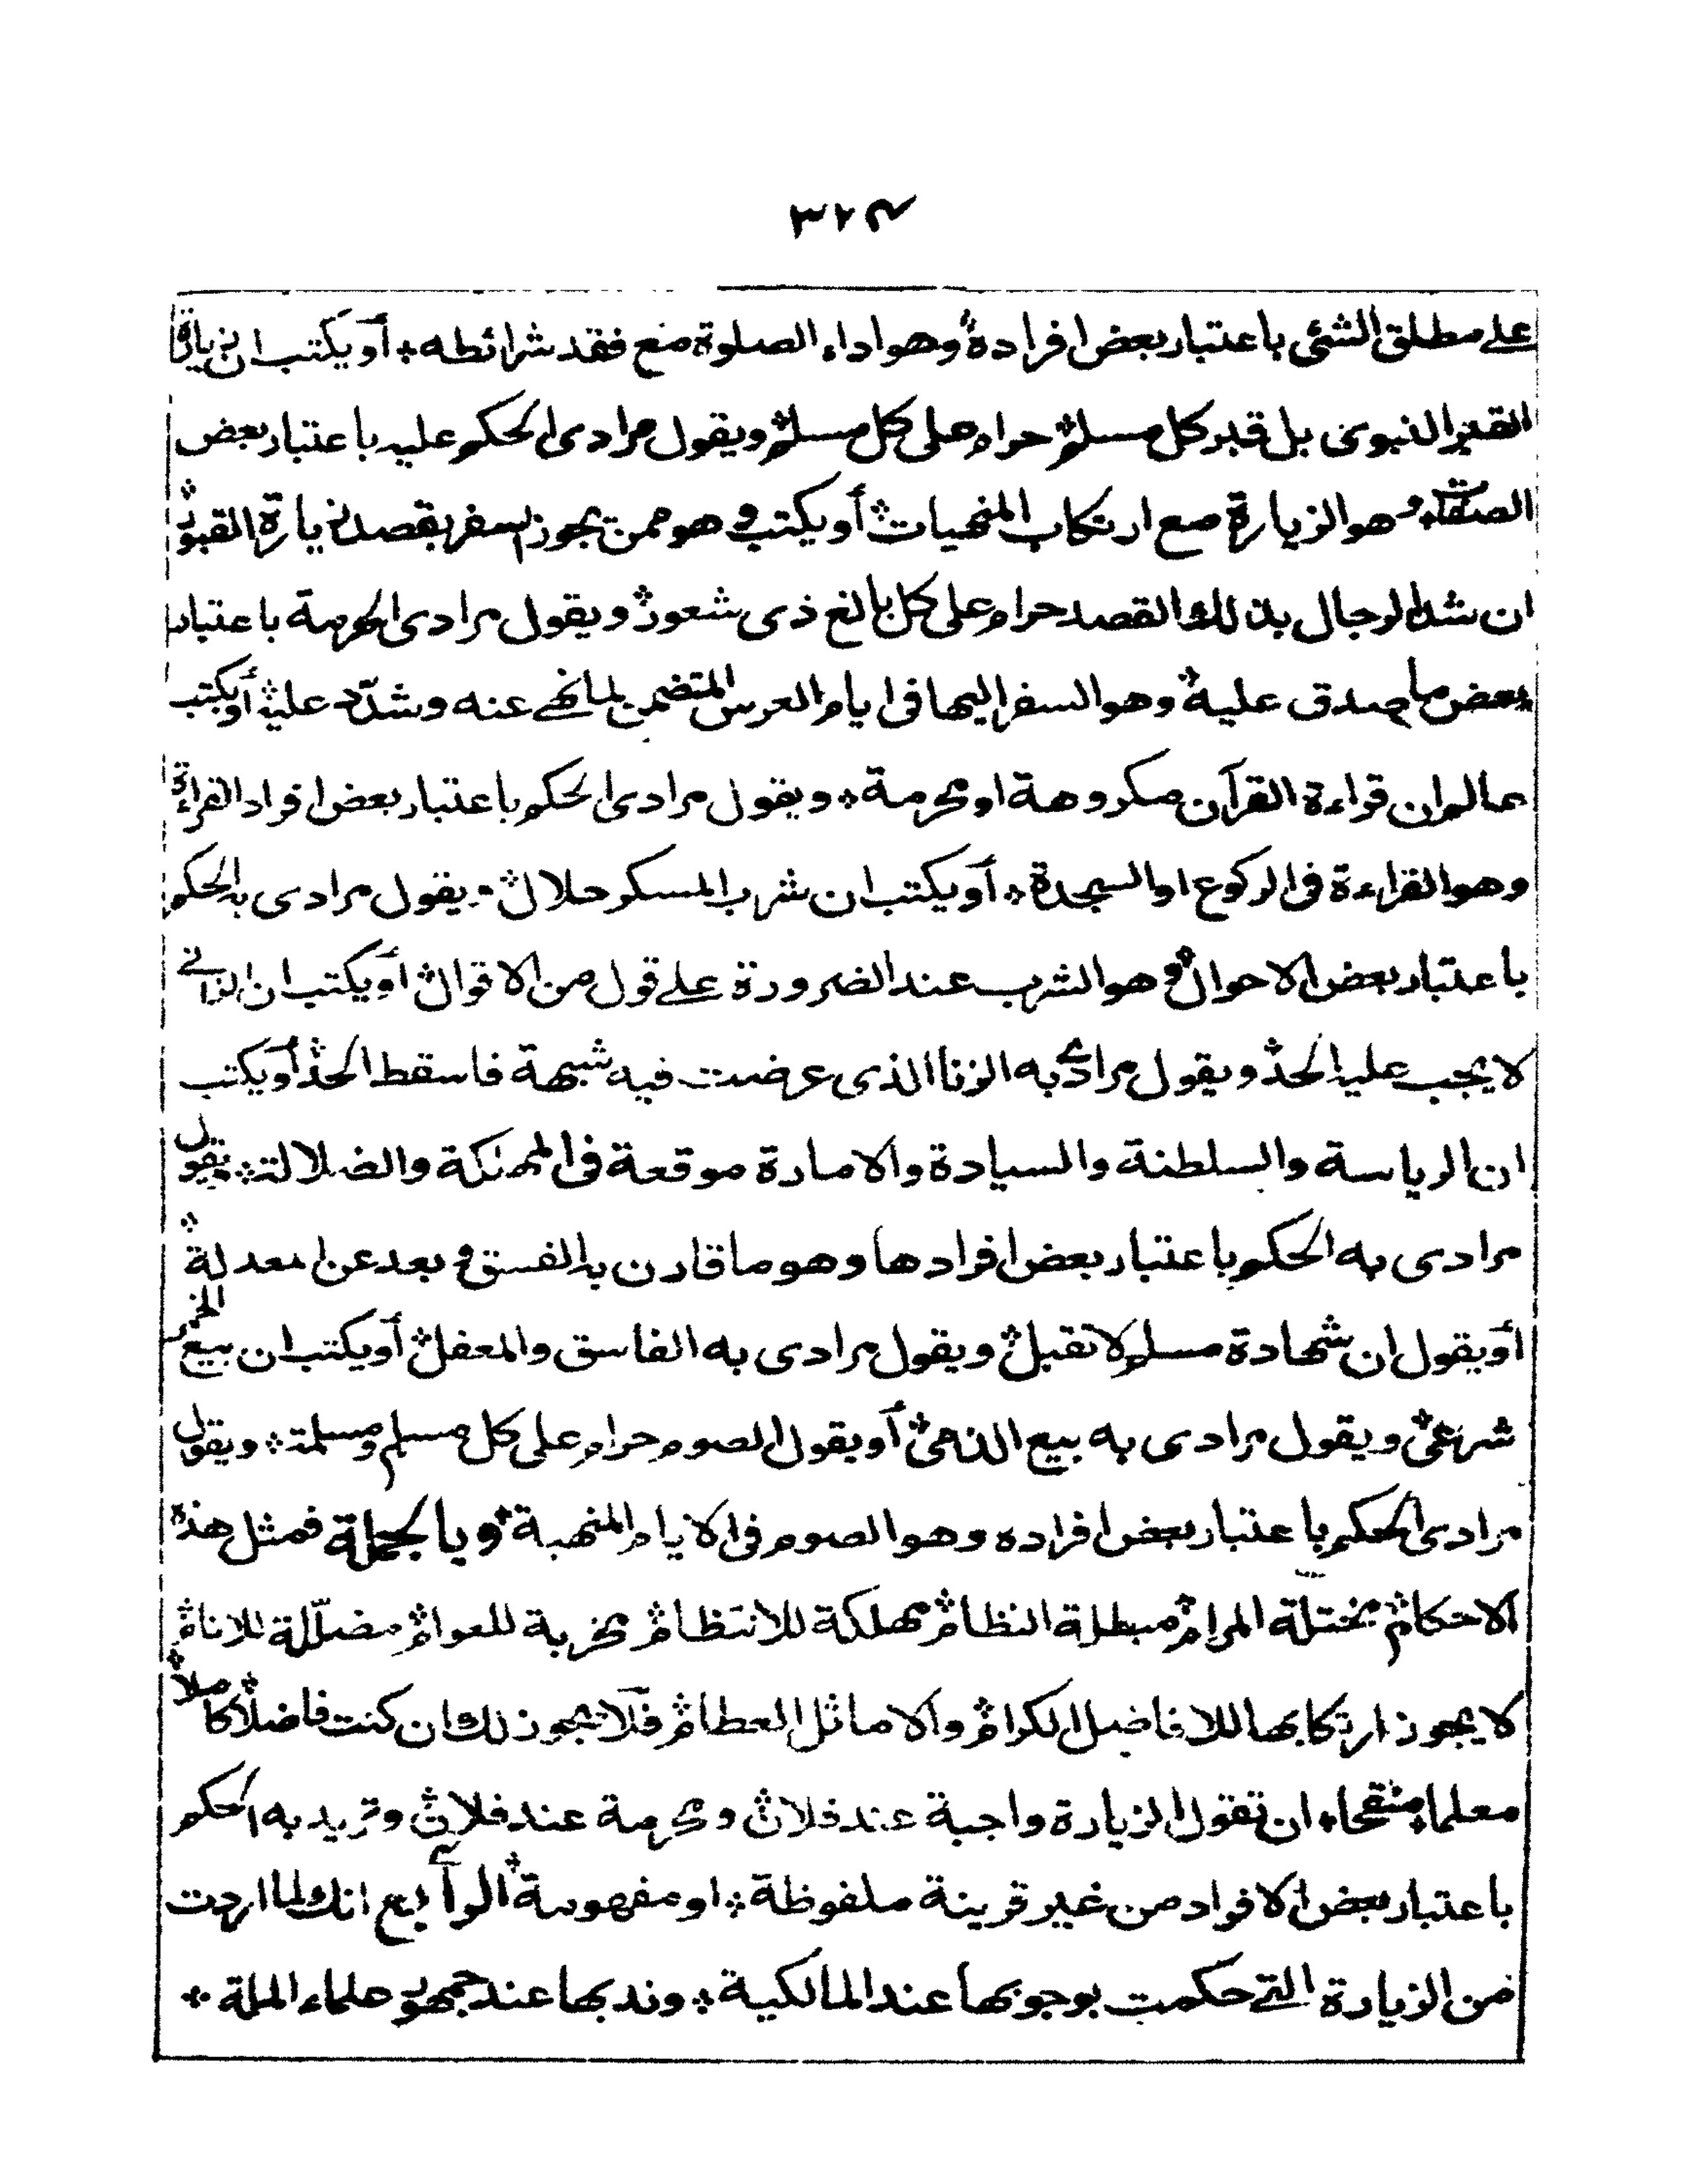 ٣٢٤
على مطلق الشئ باعتبار بعض افراده وهو اداء الصلوة مع فقد شرائطه * أو يكتب ان زيارة
القبر النبوى بل قبر كل مسلم حرام على كل مسلم ويقول مرادى الحكم عليه باعتبار بعض
وهو الزيارة مع ارتكاب المنهيات أو يكتب وهو ممن يجوز السفر بقصد زيارة القبور
ان شد الرحال بذلك القصد حرام على كل بالغ ذى شعور ويقول مرادى الحرمة باعتبار
بعض ما صدق عليه وهو السفر اليها فى ايام العرس المتضمن لما نهى عنه وشدّد عليه أو يكتب
عالم ان قراءة القرآن مكروهة او محرمة * ويقول مرادى الحكم باعتبار بعض افراد القراءة
وهو القراءة فى الركوع او السجدة * أو يكتب ان شرب المسكر حلال ويقول مرادى به الحكم
باعتبار بعض الاحوال وهو الشرب عند الضرورة على قول من الاقوال أو يكتب ان الزانى
لا يجب عليه الحد ويقول مرادى به الزنا الذى عرضت فيه شبهة فاسقط الحد أو يكتب
ان الرياسة والسلطنة والسيادة والامارة موقعة فى المهلكة والضلالة ويقول
مرادى به الحكم باعتبار بعض افرادها وهو ما قارن به الفسق و بعد عن المعدلة
أو يقول ان شهادة مسلم لا تقبل ويقول مرادى به الفاسق والمغفل أو يكتب ان بيع الخمر
شرعى ويقول مرادى به بيع الذمى أو يقول الصوم حرام على كل مسلم ومسلمة ويقول
مرادى الحكم باعتبار بعض افراده وهو الصوم فى الايام المنهية وبالجملة فمثل هذه
الاحكام مختلة المرام مبطلة النظام مهلكة للانتظام مخربة للعوام مضلّلة للانام
لا يجوز ارتكابها للافاضل الكرام والاماثل العظام فلا يجوز لك ان كنت فاضلا كاملا
معلما * منقحا * ان تقول الزيارة واجبة عند فلان ومحرمة عند فلان وتريد به الحكم
باعتبار بعض الافراد من غير قرينة ملفوظة * او مفهومة الرابع انك لما اردت
من الزيارة التى حكمت بوجوبها عند المالكية * وندبها عند جمهور علماء الملة *